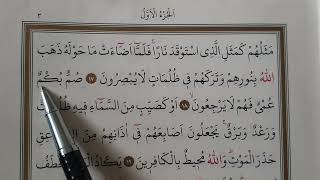 اَلْجُزْءُ الْاَوَّلُ
٣
مَثَلُهُمْ كَمَثَلِ الَّذِى اسْتَوْقَدَ نَارًاۚ فَلَمَّٓا اَضَٓاءَتْ مَا حَوْلَهُ ذَهَبَ
اللّٰهُ بِنُورِهِمْ وَتَرَكَهُمْ فِى ظُلُمَاتٍ لَا يُبْصِرُونَ ﴿١٧﴾ صُمٌّ بُكْمٌ
عُمْىٌ فَهُمْ لَا يَرْجِعُونَۙ ﴿١٨﴾ اَوْ كَصَيِّبٍ مِنَ السَّمَٓاءِ فِيهِ ظُلُمَاتٌ
وَرَعْدٌ وَبَرْقٌۚ يَجْعَلُونَ اَصَابِعَهُمْ فِٓى اٰذَانِهِمْ مِنَ الصَّوَاعِقِ
حَذَرَ الْمَوْتِؕ وَاللّٰهُ مُحِيطٌ بِالْكَافِرِينَ ﴿١٩﴾ يَخْطَفُ